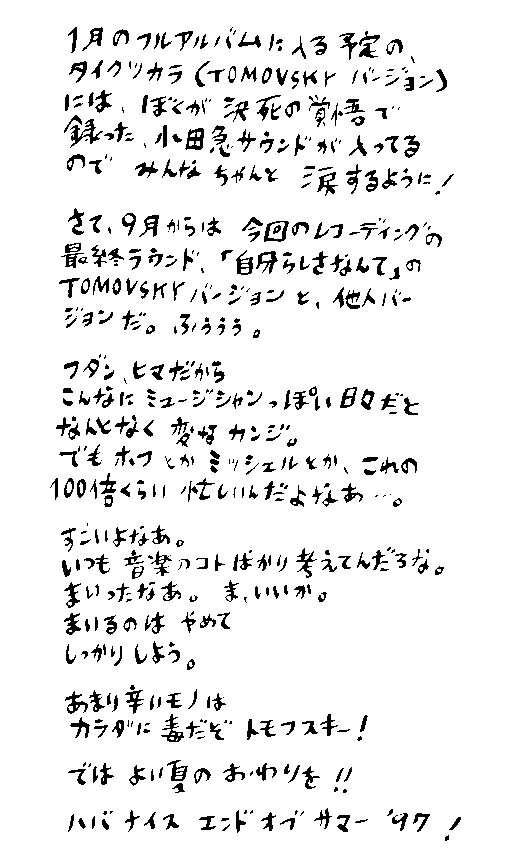 1月のフルアルバムに入る予定の、
タイクツカラ(TOMOVSKY バージョン)
には、ぼくが決死の覚悟で
録った、小田急サウンドが入ってる
ので みんな ちゃんと 涙するように!
さて、9月からは 今回のレコーディングの
最終ラウンド、「自分らしさなんて」の
TOMOVSKYバージョンと、他人バー
ジョンだ。ふぅぅぅ。
フダン、ヒマだから
こんなに ミュージシャンっぽい日々だと
なんとなく 変な カンジ。
でも ホフとか ミッシェルとか、これの
100倍くらい 忙しいんだよなあ…。
すごいよなあ。
いつも 音楽のコトばかり考えてんだろな。
まいったなあ。 ま、いいか。
まいるのは やめて
しっかりしよう。
あまり辛いモノは
カラダに毒だぞ トモフスキー!
では よい夏の おわりを!!
ハバ ナイス エンド オブ サマー '97 !